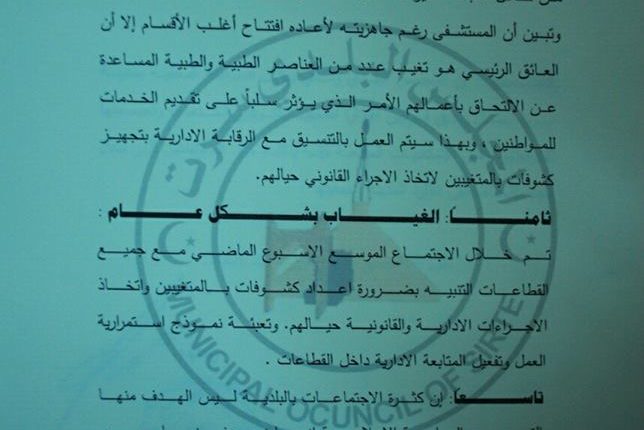 وتبين أن المستشفى رغم جاهزيته لأعاده افتتاح أغلب الأقسام إلا أن
العائق الرئيسي هو تغيب عدد من العناصر الطبية والطبية المساعدة
عن الالتحاق بأعمالهم الأمر الذي يؤثر سلباً على تقديم الخدمات
للمواطنين ، وبهذا سيتم العمل بالتنسيق مع الرقابة الادارية بتجهيز
كشوفات بالمتغيبين لاتخاذ الاجراء القانوني حيالهم.
ثامنــاً: الغيــاب بشــكل عــام :
تم خلال الاجتماع الموسع الاسبوع الماضي مع جميع
القطاعات التنبيه بضرورة اعداد كشوفات بالمتغيبين واتخاذ
الاجراءات الادارية والقانونية حيالهم. وتعبئة نموذج استمرارية
العمل وتفعيل المتابعة الادارية داخل القطاعات .
تاســعاً: إن كثرة الاجتماعات بالبلدية ليس الهدف منها
المجلس البلدي سرت
MUNICIPAL OCUNCIL OF SIRTE